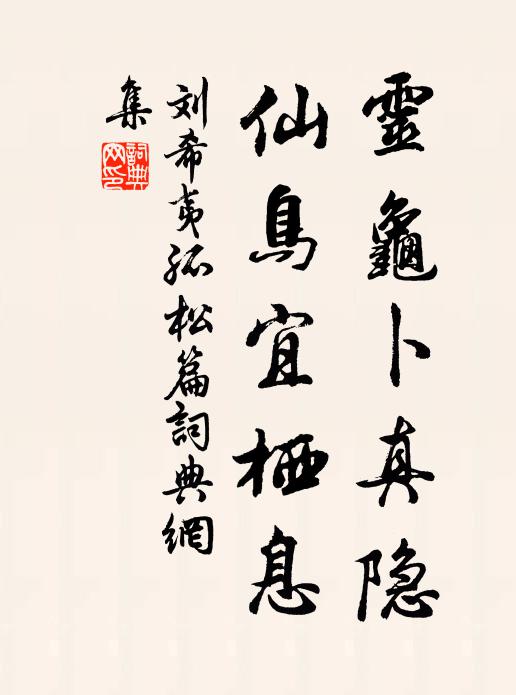 靈龜卜真隐
仙鳥宜栖息
刘希夷孤松篇詞典網
集
詞典网印